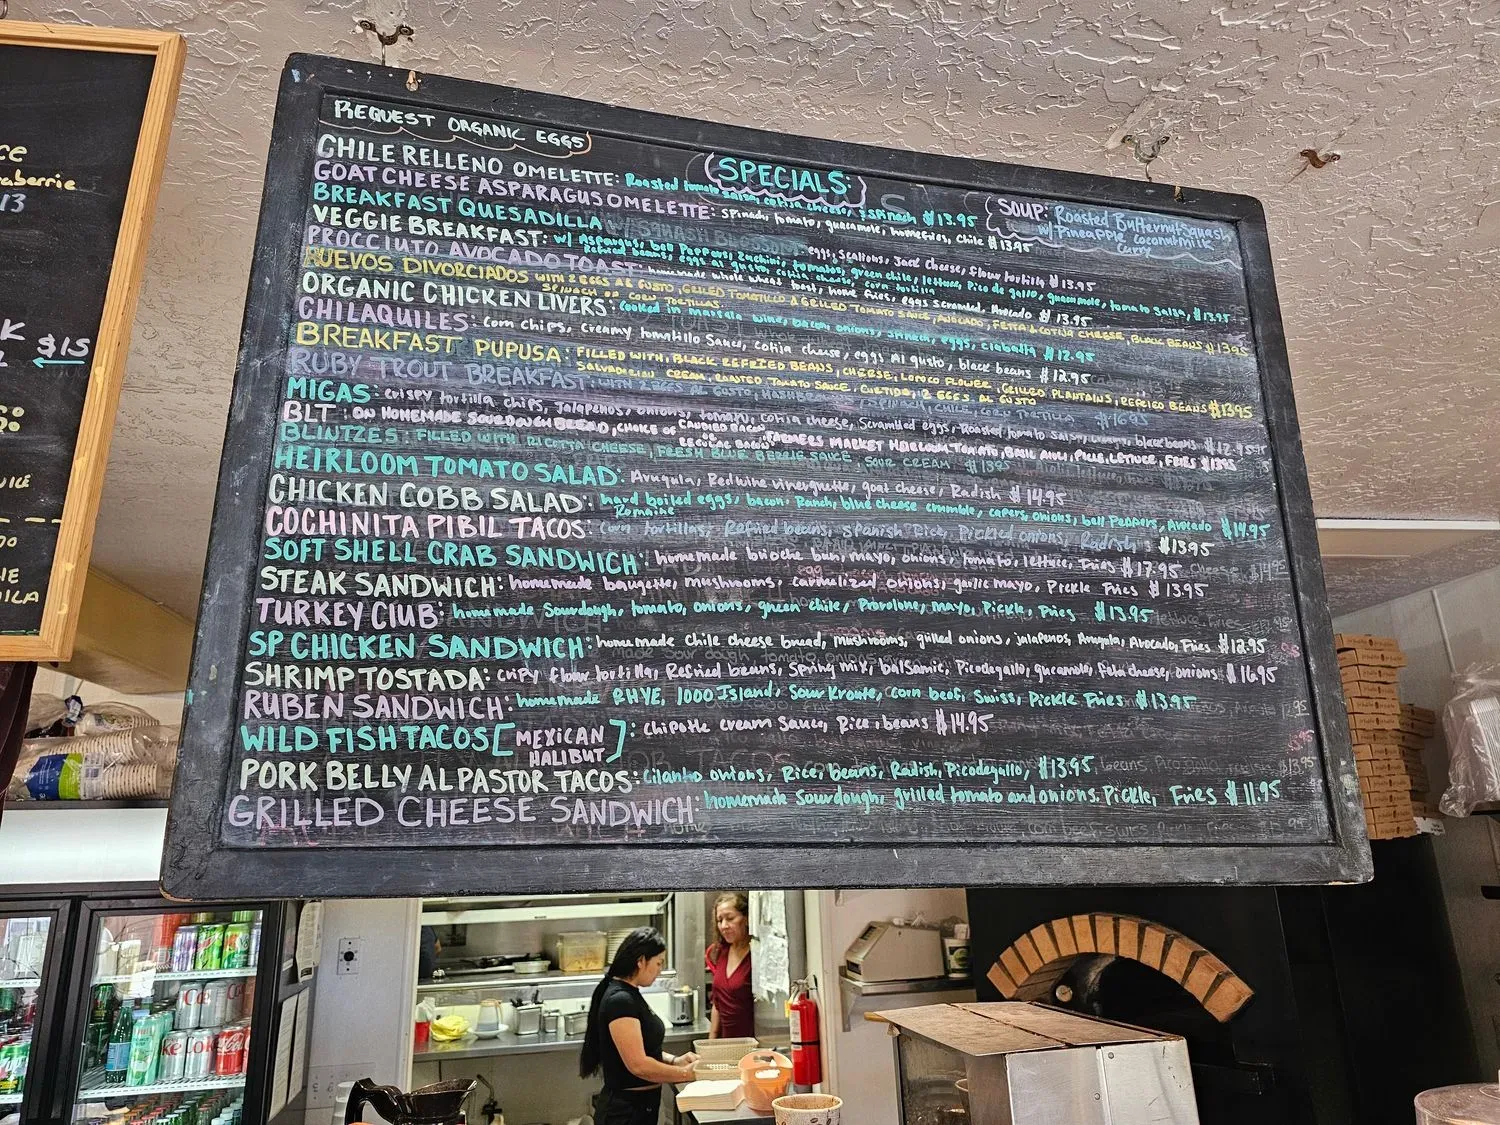 REQUEST ORGANIC EGGS
SPECIALS:
SOUP: Roasted Butternut Squash
w/ Pineapple Coconut milk
Curry
CHILE RELLENO OMELETTE: Roasted tomato salsa, cotija cheese, spinach $13.95
GOAT CHEESE ASPARAGUS OMELETTE: spinach, tomato, guacamole, homefries, chile $13.95
BREAKFAST QUESADILLA eggs, scallions, Jack cheese, flour tortilla $13.95
VEGGIE BREAKFAST: w/ Asparagus, bell Peppers, Zuchini, tomatos, green chile, lettuce, Pico de gallo, guacamole, tomato salsa, $13.95
Refried beans, eggs al gusto, cotija cheese, corn tortilla
PROCCIUTO AVOCADO TOAST: homemade whole wheat toast, home fries, eggs scrambled, Avocado $13.95
HUEVOS DIVORCIADOS WITH 2 EGGS AL GUSTO, GRILLED TOMATILLO & GRILLED TOMATO SAUCE, AVOCADO, FETTA & COTIJA CHEESE, BLACK BEANS $13.95
SPINACH ON CORN TORTILLAS.
ORGANIC CHICKEN LIVERS: cooked in marsala wine, bacon onions, spinach, eggs, ciabatta $12.95
CHILAQUILES: corn chips, creamy tomatillo Sauce, cotija cheese, eggs Al gusto, black beans $12.95
BREAKFAST PUPUSA: FILLED WITH, BLACK REFRIED BEANS, CHEESE, LOROCO FLOWER, GRILLED PLANTAINS, REFRIED BEANS $13.95
SALVADORIAN CREAM, ROASTED TOMATO SAUCE, CURTIDO, 2 EGGS AL GUSTO
RUBY TROUT BREAKFAST: WITH 2 EGGS AL GUSTO, SPINACH, CHILE, CORN TORTILLA $16.95
MIGAS: crispy tortilla chips, Jalapeños, onions, tomato, cotija cheese, Scrambled eggs, Roasted tomato salsa, black beans $12.95
BLT: ON HOMEMADE SOURDOUGH BREAD, CHOICE OF CANDIED BACON
OR
REGULAR BACON, FARMERS MARKET HEIRLOOM TOMATO, BASIL AIOLI, PICLE, LETTUCE, FRIES $13.95
BLINTZES: FILLED WITH RICOTTA CHEESE, FRESH BLUE BERRIE SAUCE, SOUR CREAM $13.95
HEIRLOOM TOMATO SALAD: Arugula, Red wine vinegruette, goat cheese, Radish $14.95
CHICKEN COBB SALAD: hard boiled eggs, bacon, Ranch, blue cheese crumble, capers, onions, bell Peppers, Avocado $14.95
Romaine
COCHINITA PIBIL TACOS: corn tortillas, Refried beans, Spanish Rice, Pickled onions, Radish $13.95
SOFT SHELL CRAB SANDWICH: homemade brioche bun, mayo, onions, tomato, lettuce, Fries $17.95
STEAK SANDWICH: homemade baugette, mushrooms, carmelized onions, garlic mayo, Pickle Fries $13.95
TURKEY CLUB: homemade Sourdough, tomato, onions, green chile, Provolone, mayo, Pickle, Fries $13.95
SP CHICKEN SANDWICH: homemade Chile cheese bread, mushrooms, grilled onions, jalapeños, Arugula, Avocado, Fries $12.95
SHRIMP TOSTADA: crispy flour tortilla, Refried beans, Spring mix, balsamic, Picodegallo, guacamole, feta cheese, onions $16.95
RUBEN SANDWICH: homemade RHYE, 1000 Island, Sour Kraute, Corn beef, Swiss, Pickle Fries $13.95
WILD FISH TACOS [MEXICAN
HALIBUT]: chipotle cream Sauce, Rice, beans $14.95
PORK BELLY AL PASTOR TACOS: cilantro onions, Rice, beans, Radish, Picodegallo, $13.95
GRILLED CHEESE SANDWICH: homemade Sourdough, grilled tomato and onions. Pickle, Fries $11.95
$15
13
Coke